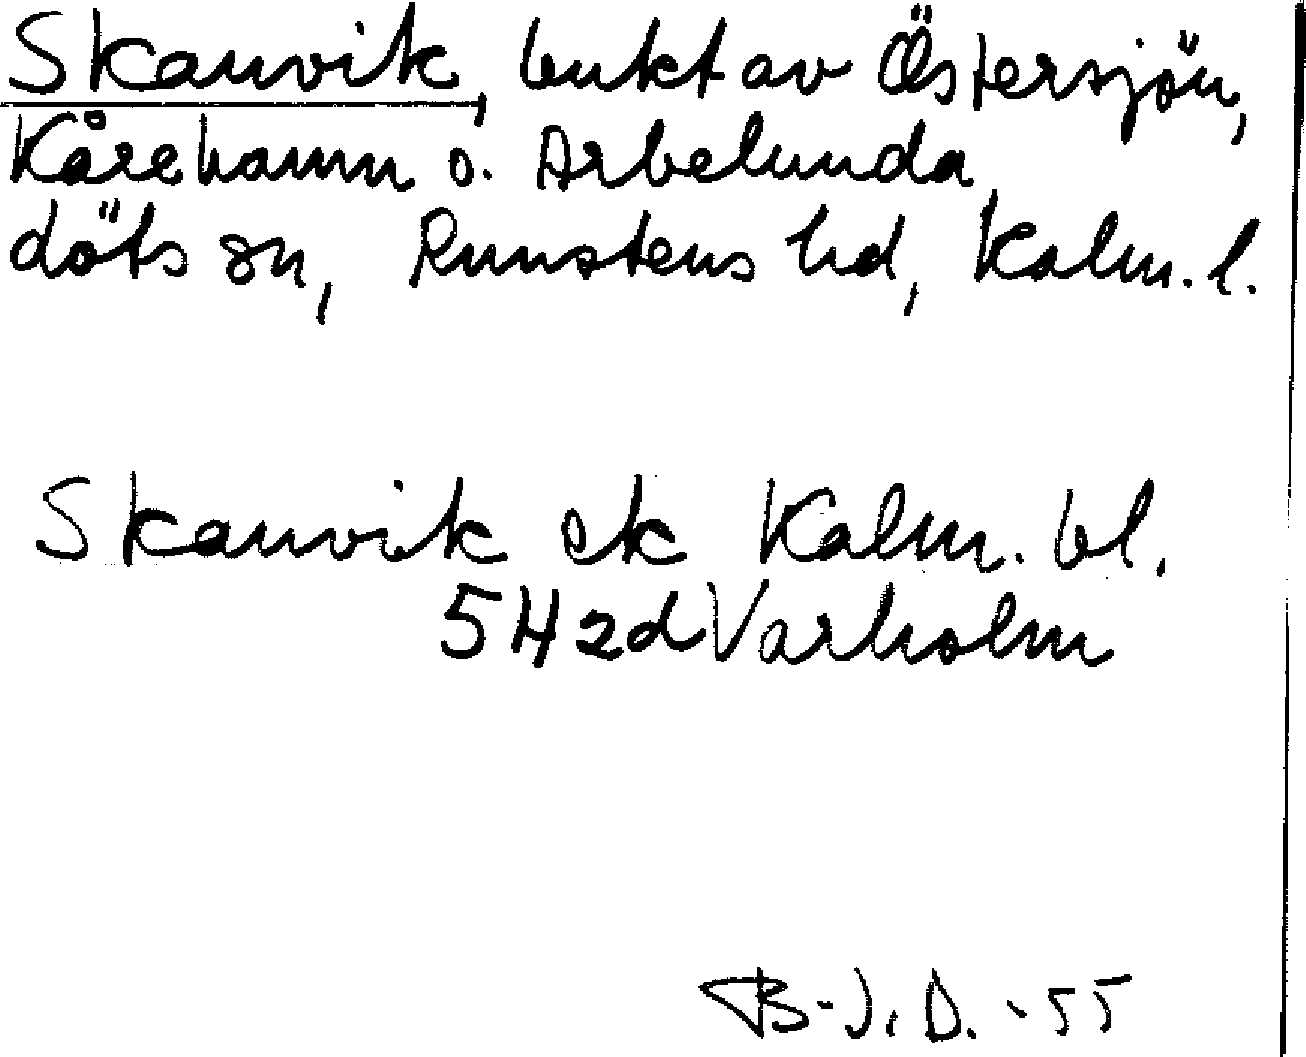 Skanvik, bukt av Östersjön,
Kårehamn o. Arbelunda
döts sn, Runstens hd, Kalm. l.
Skanvik ek Kalm. bl.
5H2d Varholm
B-J. D. -55